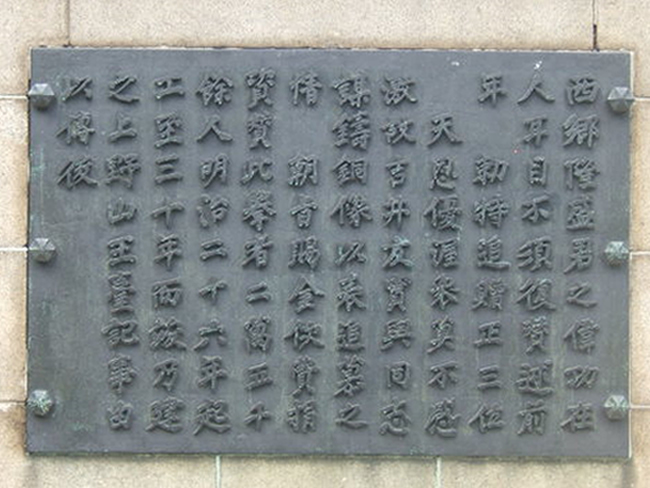 西郷隆盛君之偉功在
人耳目不須復贊述前
年　勅特追贈正三位
天恩優渥衆莫不感
激故吉井友實與同志
謀鑄銅像以表追慕之
情　朝旨賜金佽費捐
資贊此擧者二萬五千
餘人明治二十六年起
工至三十年而竣乃建
之上野山王臺記事由
以傳後